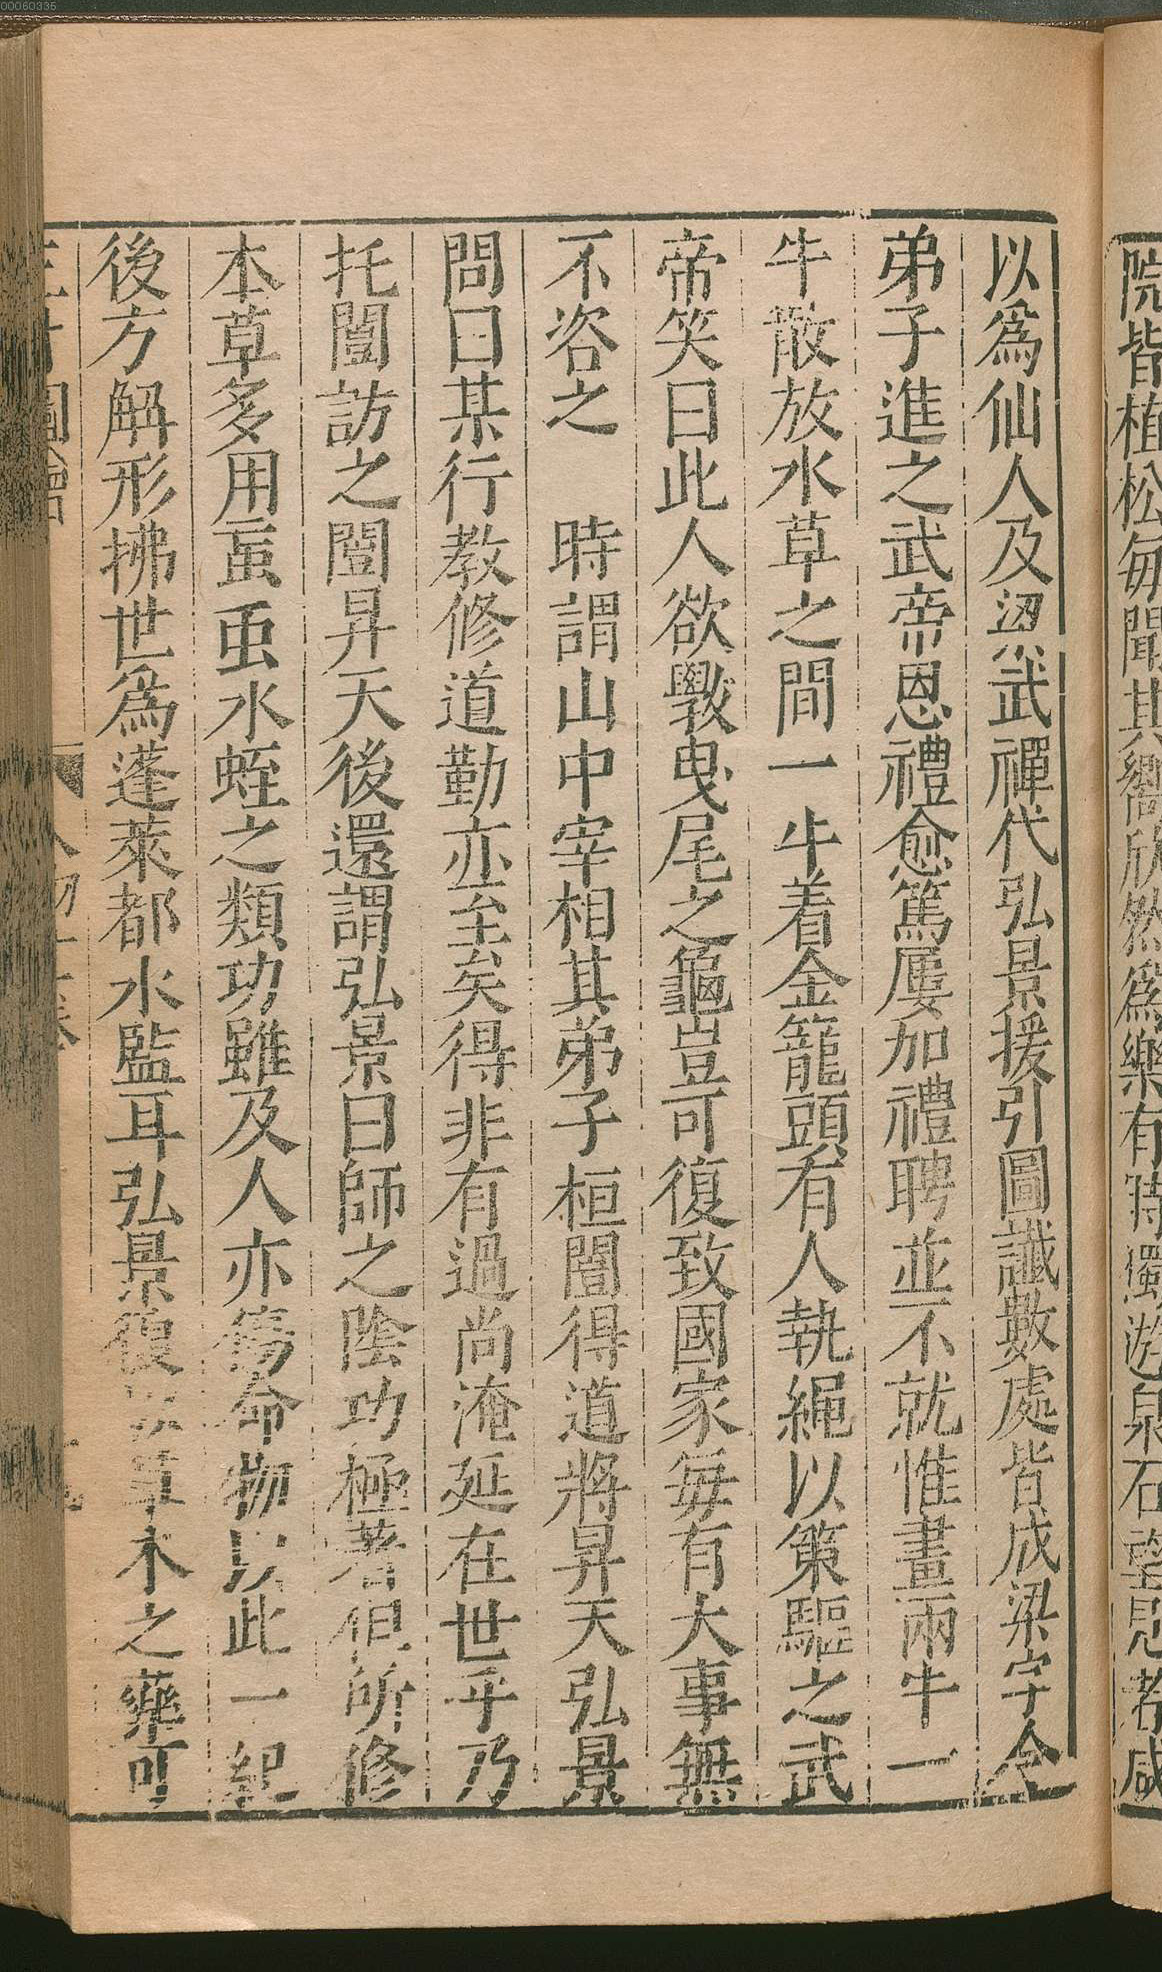 院皆植松每聞其響欣然爲樂有時獨遊泉石望見者咸
以爲仙人及梁武禪代弘景援引圖讖數處皆成梁字令
弟子進之武帝恩禮愈篤屢加禮聘並不就惟畫兩牛一
牛散放水草之間一牛着金籠頭有人執繩以策驅之武
帝笑曰此人欲斅曳尾之龜豈可復致國家每有大事無
不咨之　時謂山中宰相其弟子桓闓得道將昇天弘景
問曰某行教修道勤亦至矣得非有過尚淹延在世乎乃
托闓訪之闓昇天後還謂弘景曰師之陰功極著但所修
本草多用䖟虫水蛭之類功雖及人亦傷命物以此一紀
後方解形拂世爲蓬萊都水監耳弘景復以草木之藥可
三才圖會 人物十卷
00060335